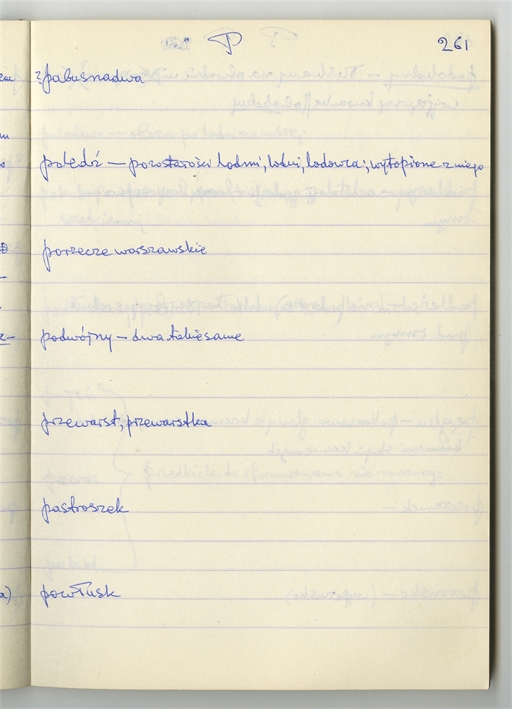 P 261
?pabusnadwa
polędź — pozostałości lodmi, lodni, lodowca; wytopione z niego
porzecze warszawskie
podwójny — dwa takie same
przewarst, przewarstka
pastroszek
powłusk